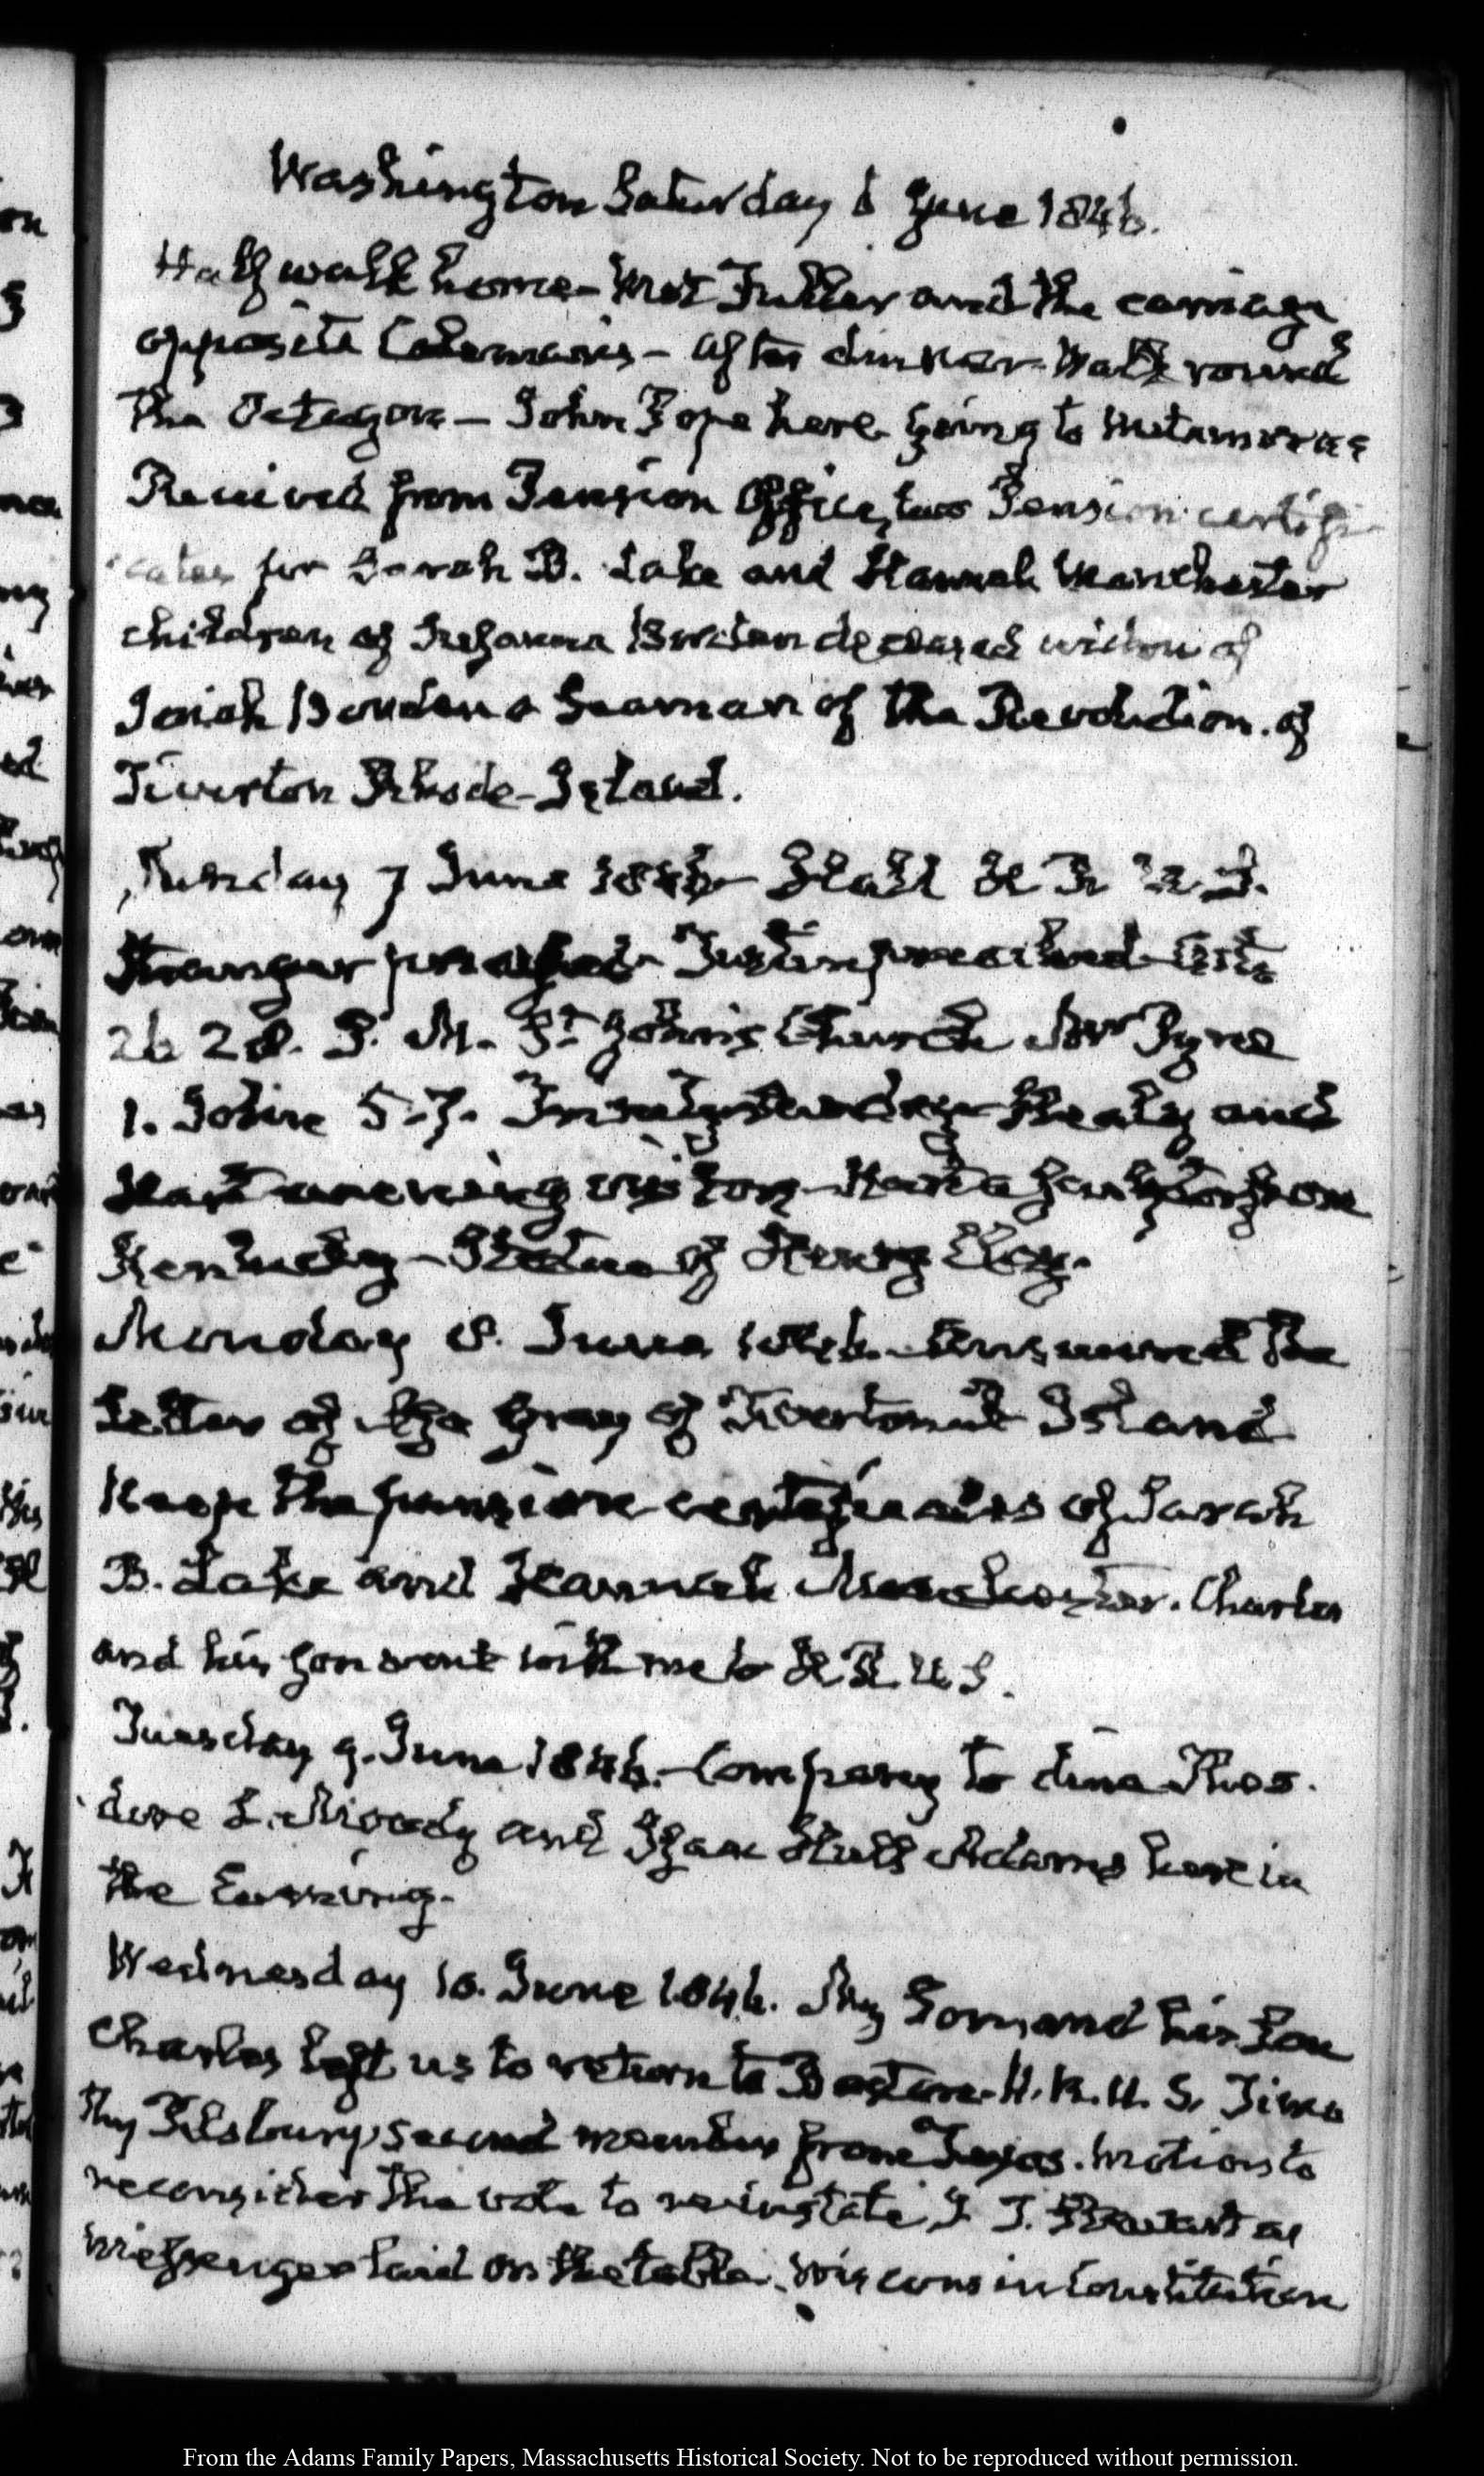 Washington Saturday 6 June 1846.
Half walk home - Met Fuller and the carriage
opposite Colemans - after dinner - Walk round
the Octagon - John Pope here going to Matamoras
Received from Pension Office, two Pension certifi-
cates for Sarah B. Lake and Hannah Manchester
children of Burden deceased widow of
Isaiah Burden a Seaman of the Revolution. of
Tiverton Rhode-Island.
Sunday 7 June 1846 - Hall H R U.S.
Stranger preached - preached Acts
26 28. P. M. St John's Church Mr Pyne
1. John 5.7. Healy and
Hart evening visitors - Hart a Sculptor from
Kentucky - Statue of Henry Clay.
Monday 8. June 1846. Answered the
Letter of Gray of Tiverton Island
Keep the pension certificates of Sarah
B. Lake and Hannah Manchester. Charles
and his Son went with me to H R. U S.
Tuesday 9. June 1846. - Company to dine Theo-
dore L. Moody and Isaac Hull Adams here in
the Evening.
Wednesday 10. June 1846. My Son and his Son
Charles left us to return to Boston - H. R. U. S. Timo
thy Pilsbury, second member from Texas. Motion to
reconsider the vote to reinstate J. J. Stewart as
messenger laid on the table. Wisconsin Constitution
From the Adams Family Papers, Massachusetts Historical Society. Not to be reproduced without permission.